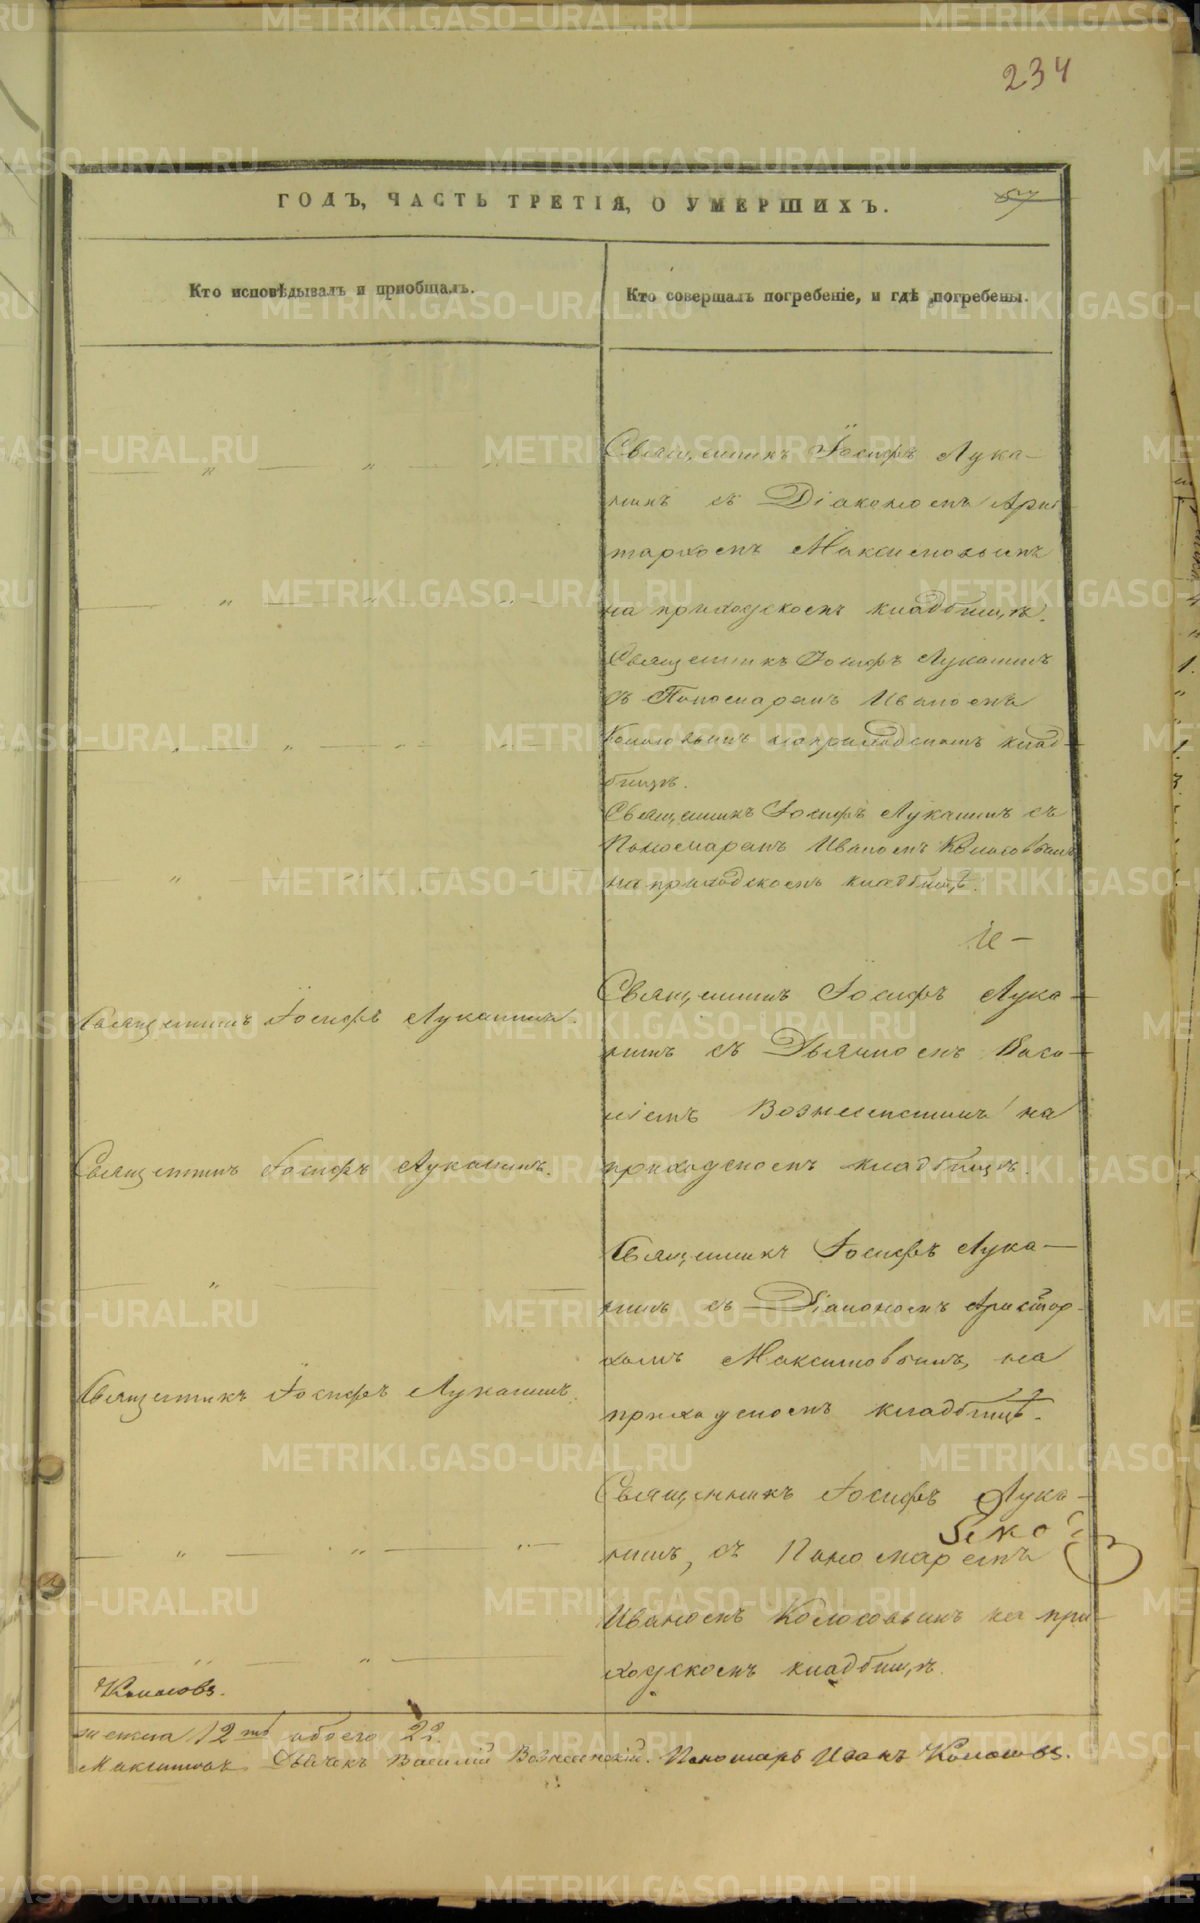 234
ГОДЪ, ЧАСТЬ ТРЕТІЯ, О УМЕРШИХЪ.
Кто исповѣдывалъ и приобщалъ.
Кто совершалъ погребеніе, и гдѣ погребены.
Священникъ Іосифъ Лука-
нинъ съ Діакономъ Арис
тархомъ Максимовымъ
на приходскомъ кладбищѣ.
Священникъ Іосифъ Луканинъ
съ Пономаремъ Иваномъ
Колосовымъ на приходскомъ клад-
бищѣ.
Священникъ Іосифъ Луканинъ съ
Пономаремъ Иваномъ Колосовымъ
на приходскомъ кладбищѣ.
Священникъ Іосифъ Луканинъ.
Священникъ Іосифъ Лука-
нинъ съ Дьячкомъ Васи-
ліемъ Вознесенскимъ на
Священникъ Іосифъ Луканинъ.
приходскомъ кладбищѣ.
Священникъ Іосифъ Лука-
нинъ съ Діакономъ Аристар-
хомъ Максимовымъ, на
Священникъ Іосифъ Луканинъ.
приходскомъ кладбищѣ.
Священникъ Іосифъ Лука-
нинъ, съ Пономаремъ
Иваномъ Колосовымъ на при-
ходскомъ кладбищѣ.
Колосовъ.
женска 12ть обоего 22.
Максимовъ Дьячекъ Василій Вознесенскій. Пономарь Иванъ Колосовъ.
METRIKI.GASO-URAL.RU